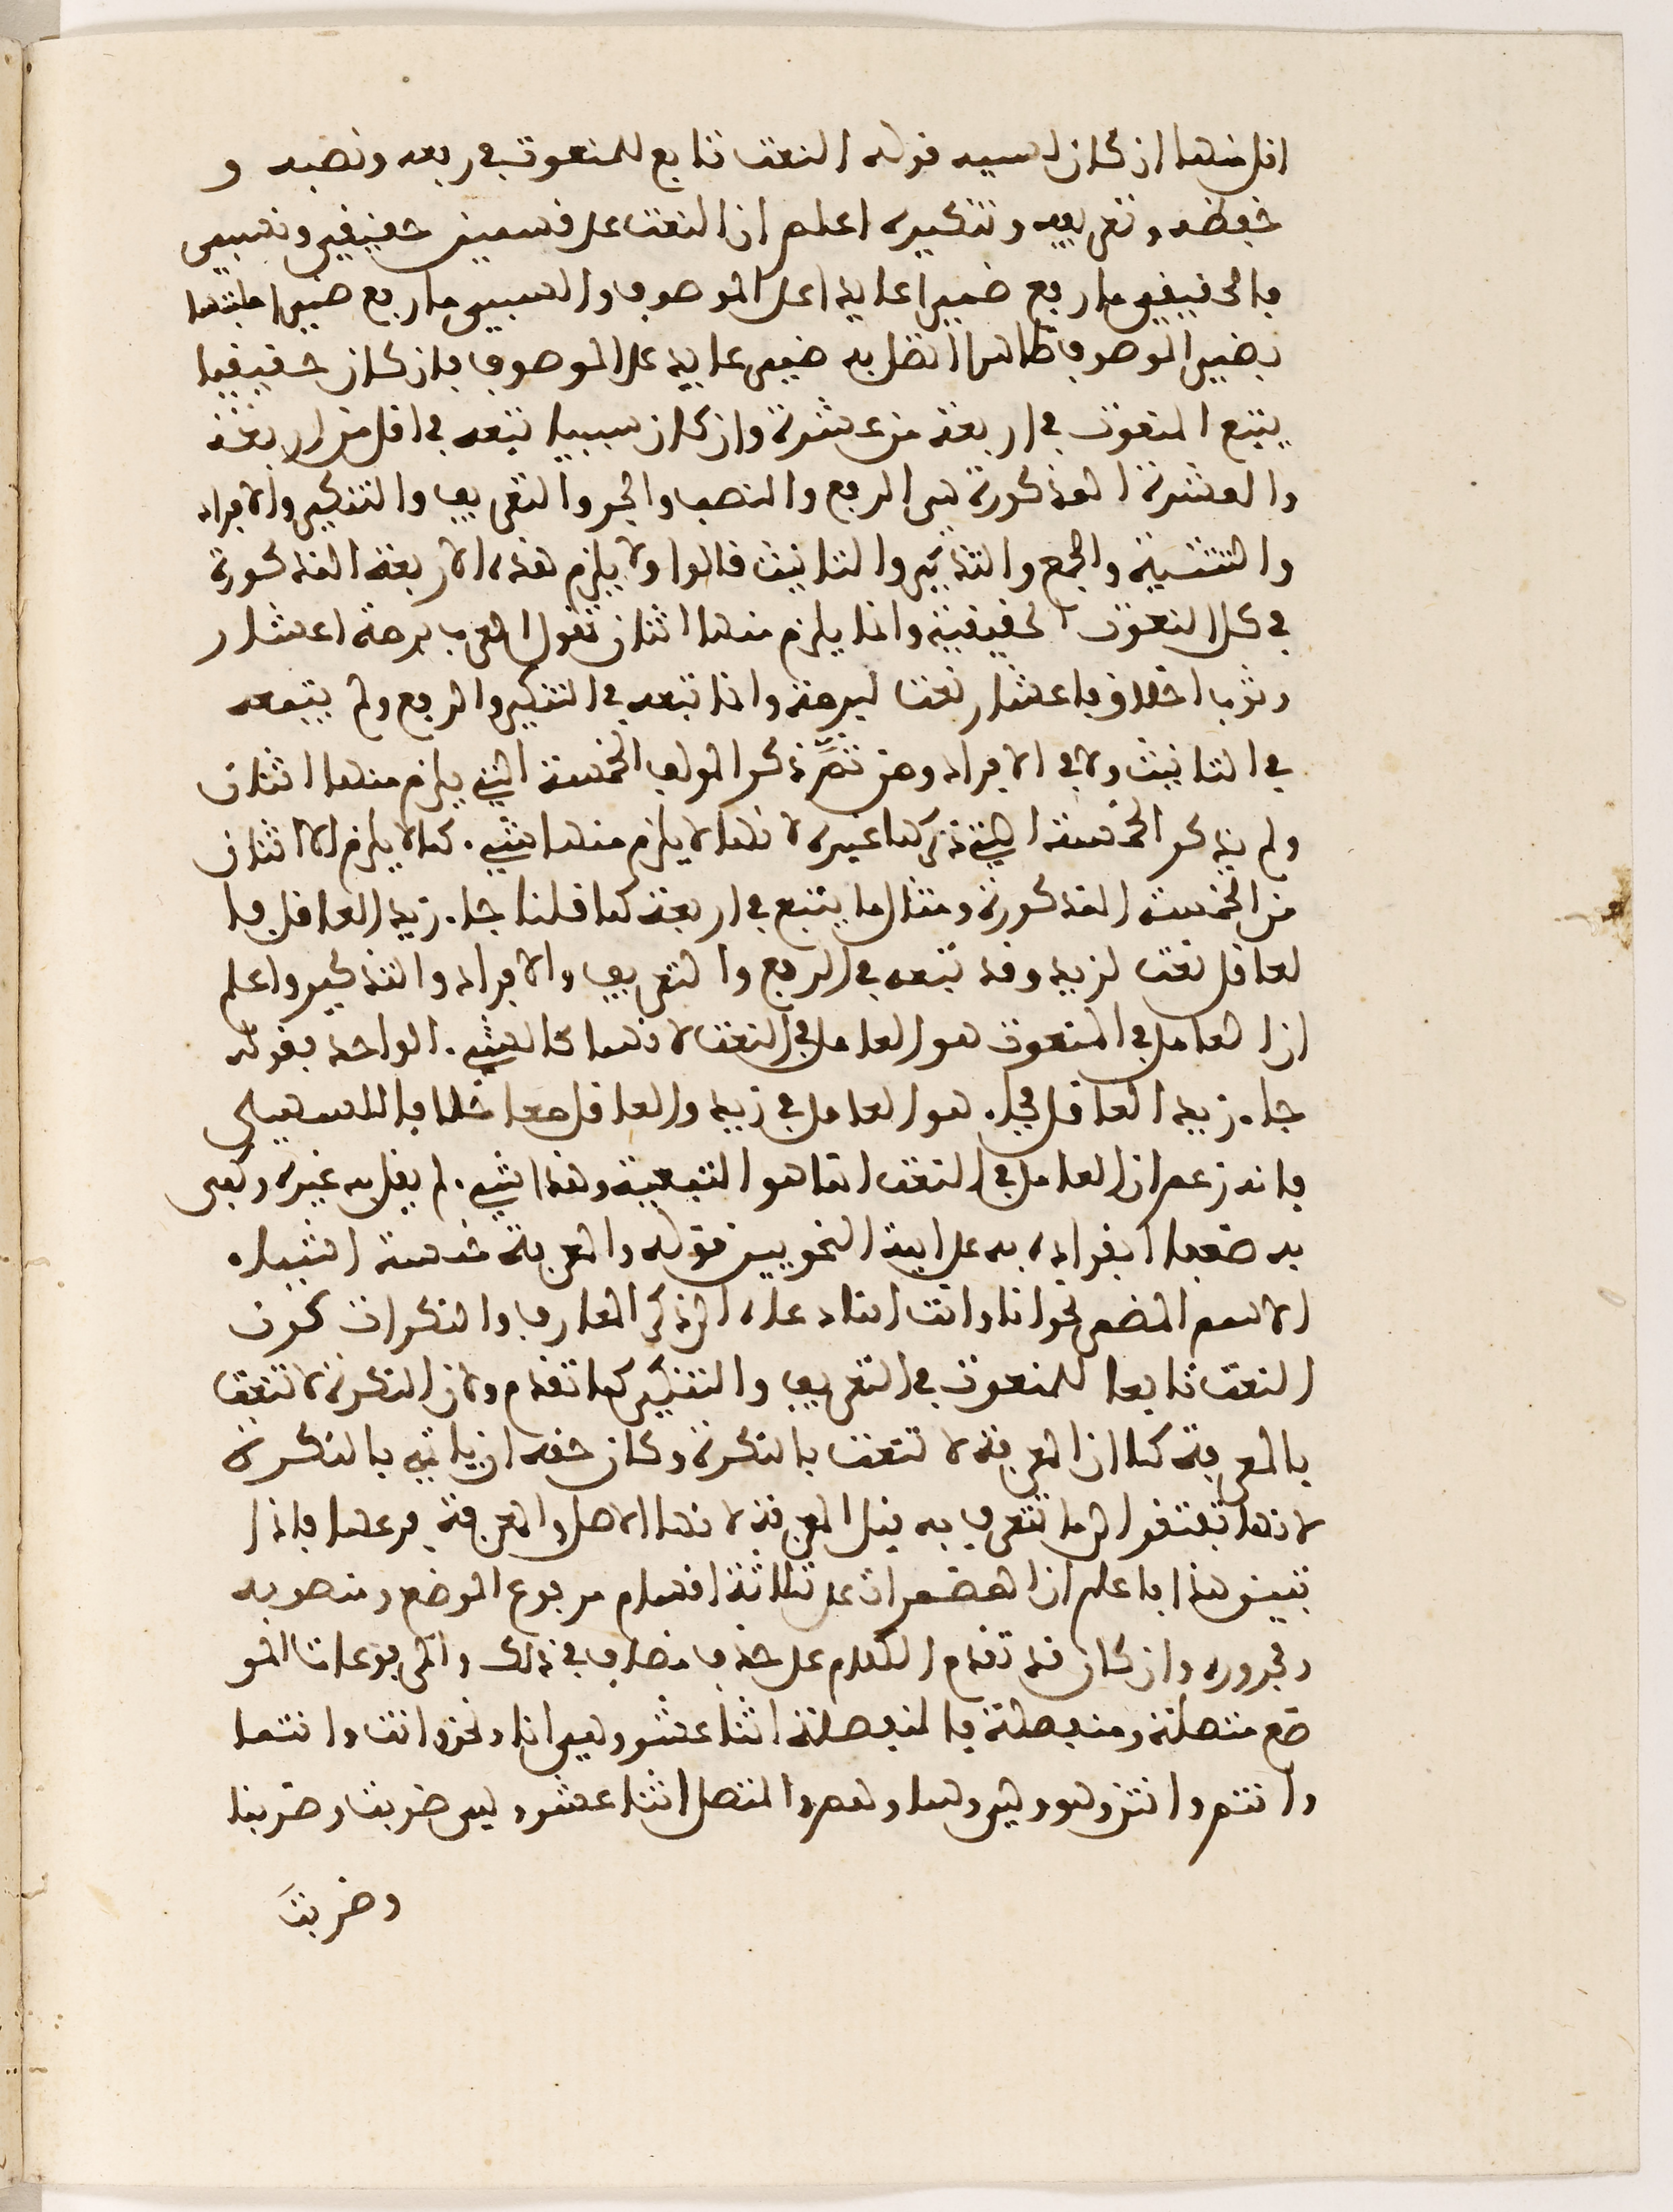 اقل منها ان كان لسببه قوله النعت تابع للمنعوت في رفعه ونصبه و
خفظه وتعريفه وتنكيره اعلم ان النعت على قسمين حقيقي وسببي
فالحقيقي ما رفع ضميرا عايدا على الموصوف والسببي ما رفع ضميرا
بضمير الموصوف ظاهرا اتصل به ضمير عايد على الموصوف فان كان حقيقيا
يتبع المنعوت في اربعة من عشرة وان كان سببيا تبعه في اقل من اربعة
والعشرة المذكورة هي الرفع والنصب والجر والتعريف والتنكير والافراد
والتثنية والجمع والتذكير والتانيث قالوا ولا يلزم هذه الاربعة المذكورة
في كل النعوت الحقيقية وانما يلزم منها اثنان تقول العرب برمة اعشار
وثوب اخلاق فاعشار نعت لبرمة وانما تبعه في التنكير والرفع ولم يتبعه
في التانيث ولا في الافراد ومن ثَمَّ ذكر المولف الخمسة التي يلزم منها اثنان
ولم يذكر الخمسة التي ذكرها غيره لانها لا يلزم منها شيء كما لا يلزم الا اثنان
من الخمسة المذكورة ومثال ما يتبع في اربعة كما قلنا جاء زيد العاقل فا
لعاقل نعت لزيد وقد تبعه في الرفع والتعريف والافراد والتذكير واعلم
ان العامل في المنعوت هو العامل في النعت لانهما كالشيء الواحد فقولك
جاء زيد العاقل فجاء هو العامل في زيد والعاقل معا خلافا للسهيلي
فانه زعم ان العامل في النعت انما هو التبعية وهذا شيء لم يقل به غيره وكفى
به ضعفا انفراده به على اية النحويين قوله والمعرفة خمسة اشياء
الاسم المضمر نحو انا وانت انما دعاه الى ذكر المعارف والنكرات كون
النعت تابعا للمنعوت في التعريف والتنكير كما تقدم ولان النكرة لا تنعت
بالمعرفة كما ان المعرفة لا تنعت بالنكرة وكان حقه ان ياتي بالنكرة
لانها تفتقر الى ما تتعرف به قبل المعرفة لانها الاصل والمعرفة فرعها فاذا
تبين هذا فاعلم ان المضمرات على ثلاثة اقسام مرفوع الموضع ومنصوبه
ومجروره وان كان قد تقدم الكلام على حذف مضاف في ذلك والمرفوعات المو
ضع متصلة ومنفصلة فالمنفصلة اثنا عشر وهي انا ونحن وانت وانتما
وانتم وانتن وهو وهي وهما وهم والمتصل اثنا عشر وهي ضربت وضربنا
وضربتَ